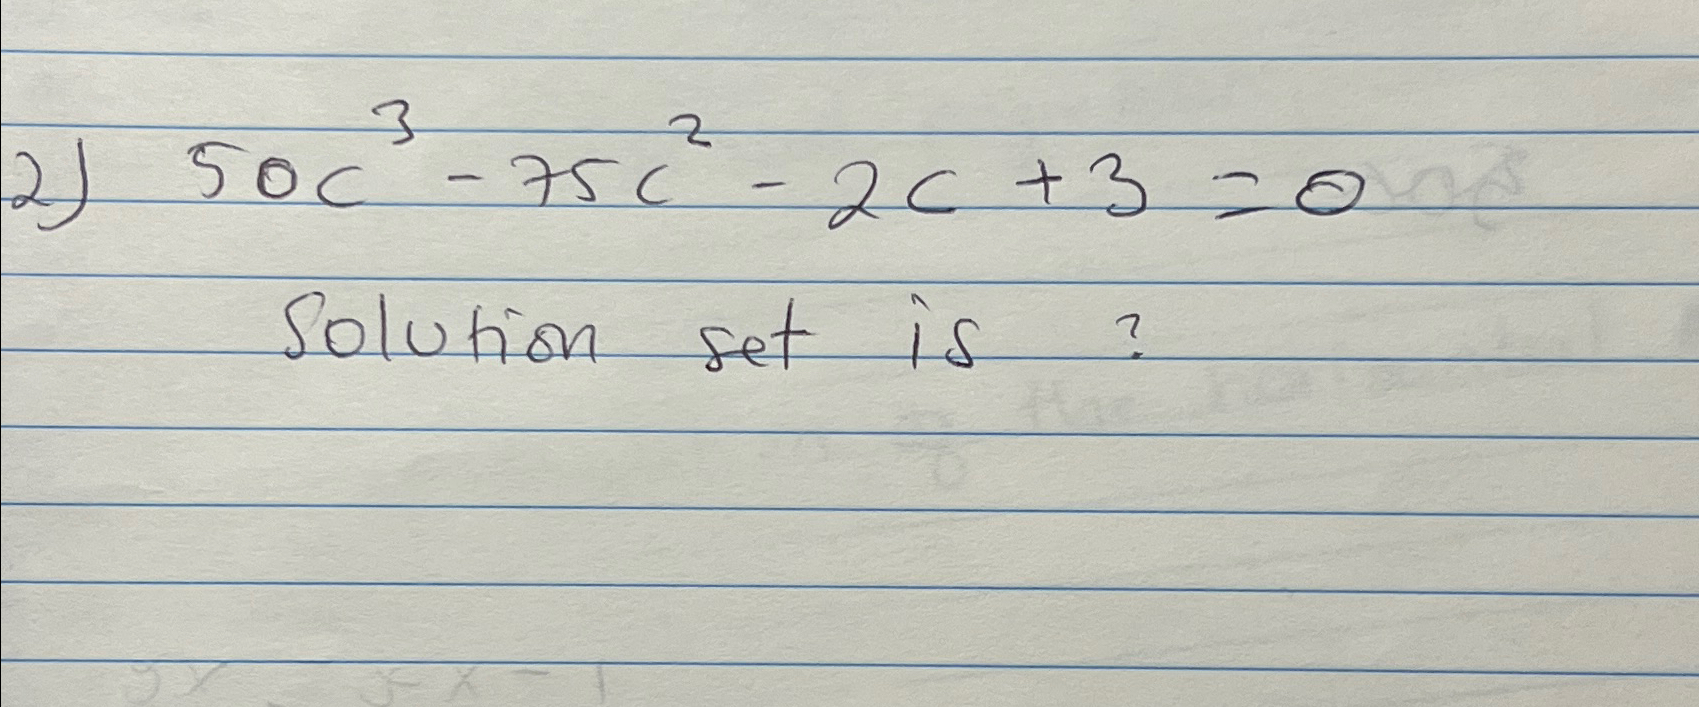 2) 50c³ - 75c² - 2c + 3 = 0
Solution set is ?